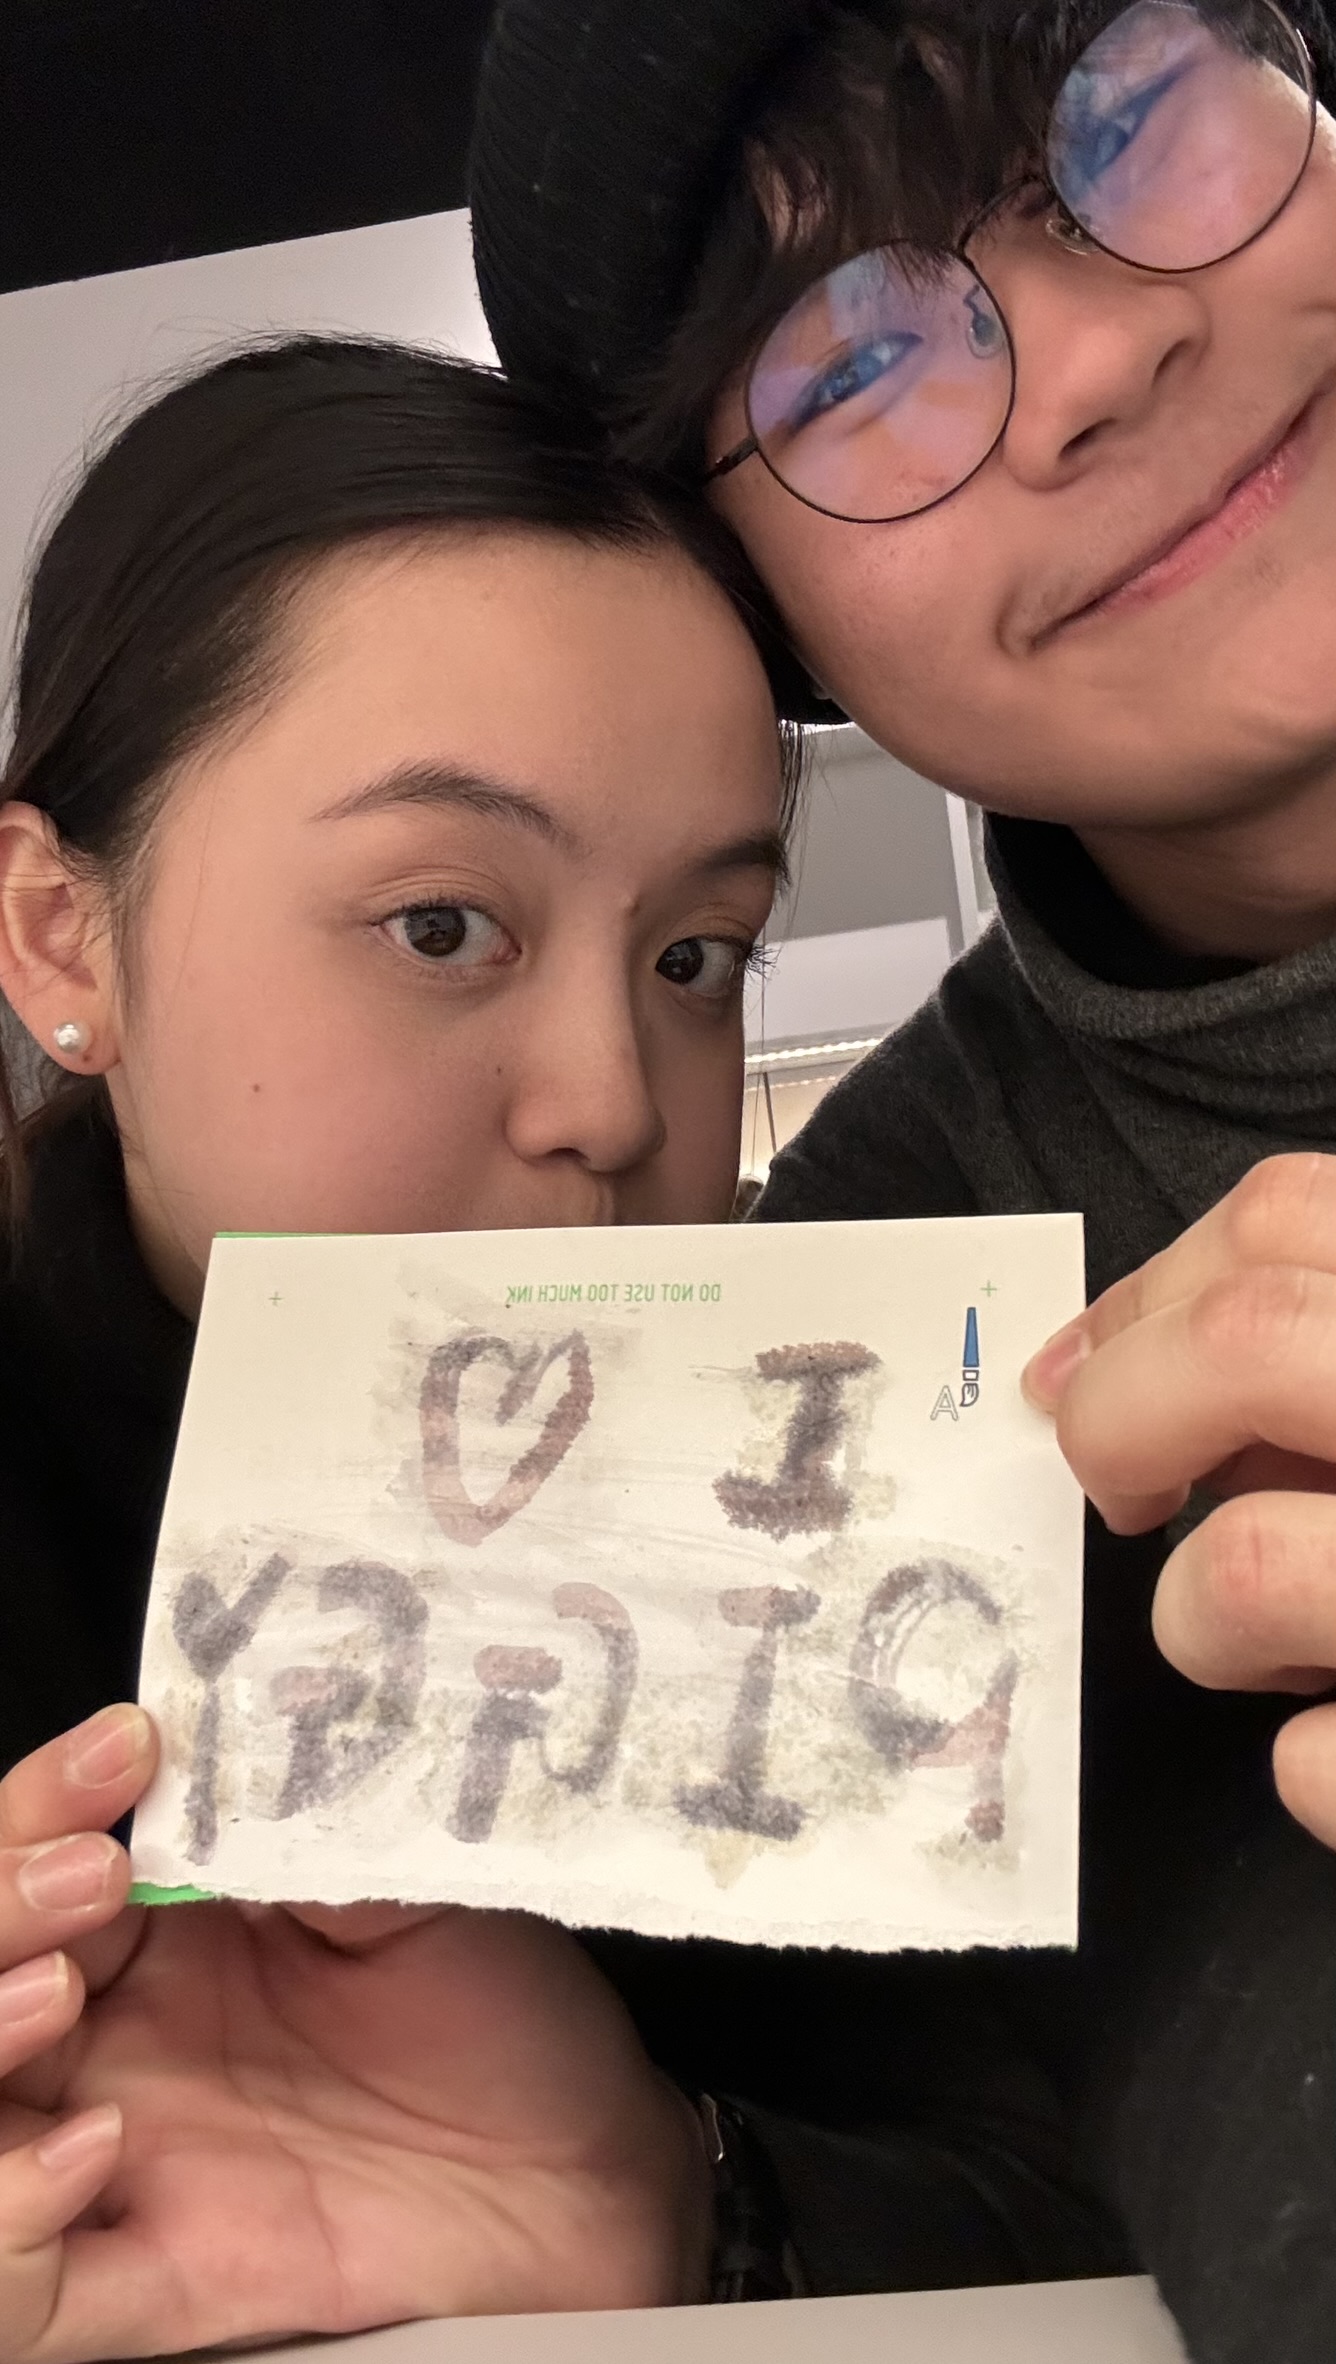 DO NOT USE TOO MUCH INK
A
I ♡
PIGGY